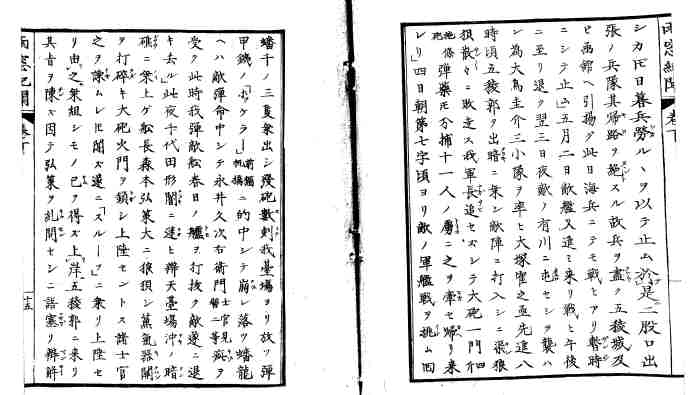 シカ𪜈日暮兵勞ルヽヲ以テ止ム於是二股口出
張ノ兵隊其歸路ヲ絶スル故兵ヲ盡ク五稜城及
ヒ函館ヘ引揚ク此日海兵ニテモ戰ヒアリ暫時
ニシテ止ム五月二日敵艦又進ミ來リ戰ヒ午後
ニ至リ退ク翌三日夜敵ノ有川ニ屯セシヲ襲ハ
ン為大鳥圭介三小隊ヲ率ヒ大塚霍之丞先進八
時頃五稜郭ヲ出暗ニ乗シ敵陣ニ打入シニ狼狽
損散々ニ敗走ス我軍長追セスシテ大砲一門
彈藥ヲ分捕十一人ノ虜ニ之ヲ牽セ歸リ来
レリ四日朝第七字頃ヨリ敵ノ軍艦戰ヲ挑ム回
蟠千ノ三隻乗出シ發砲數刻我臺場ヨリ放ツ彈
甲鐵ノ「ボケラー」ニ的中シテ崩レ落ツ蟠龍
ヘハ敵彈命中シテ永井久次右衛門 士官見習二等 痍ヲ
受ク此時我彈敵船春日ノ艫ヲ打抜ク敵遂ニ退
キ去ル此夜千代田形闇ニ迷ヒ辨天臺場沖ノ暗
礁ニ乗上ケ船長森本弘策大ニ狼狽シ蒸氣器關
ヲ打碎キ大砲火門ヲ鎖シ上陸セントス諸士官
之ヲ諫ムレ𪜈聞ス遂ニ「スルーフ」ニ乗リ上陸セ
リ由之乗組シモノ已ヲ得ス上岸五稜郭ニ来リ
其旨ヲ陳ス因テ弘策ヲ糺問センニ語塞リ辨解
十五